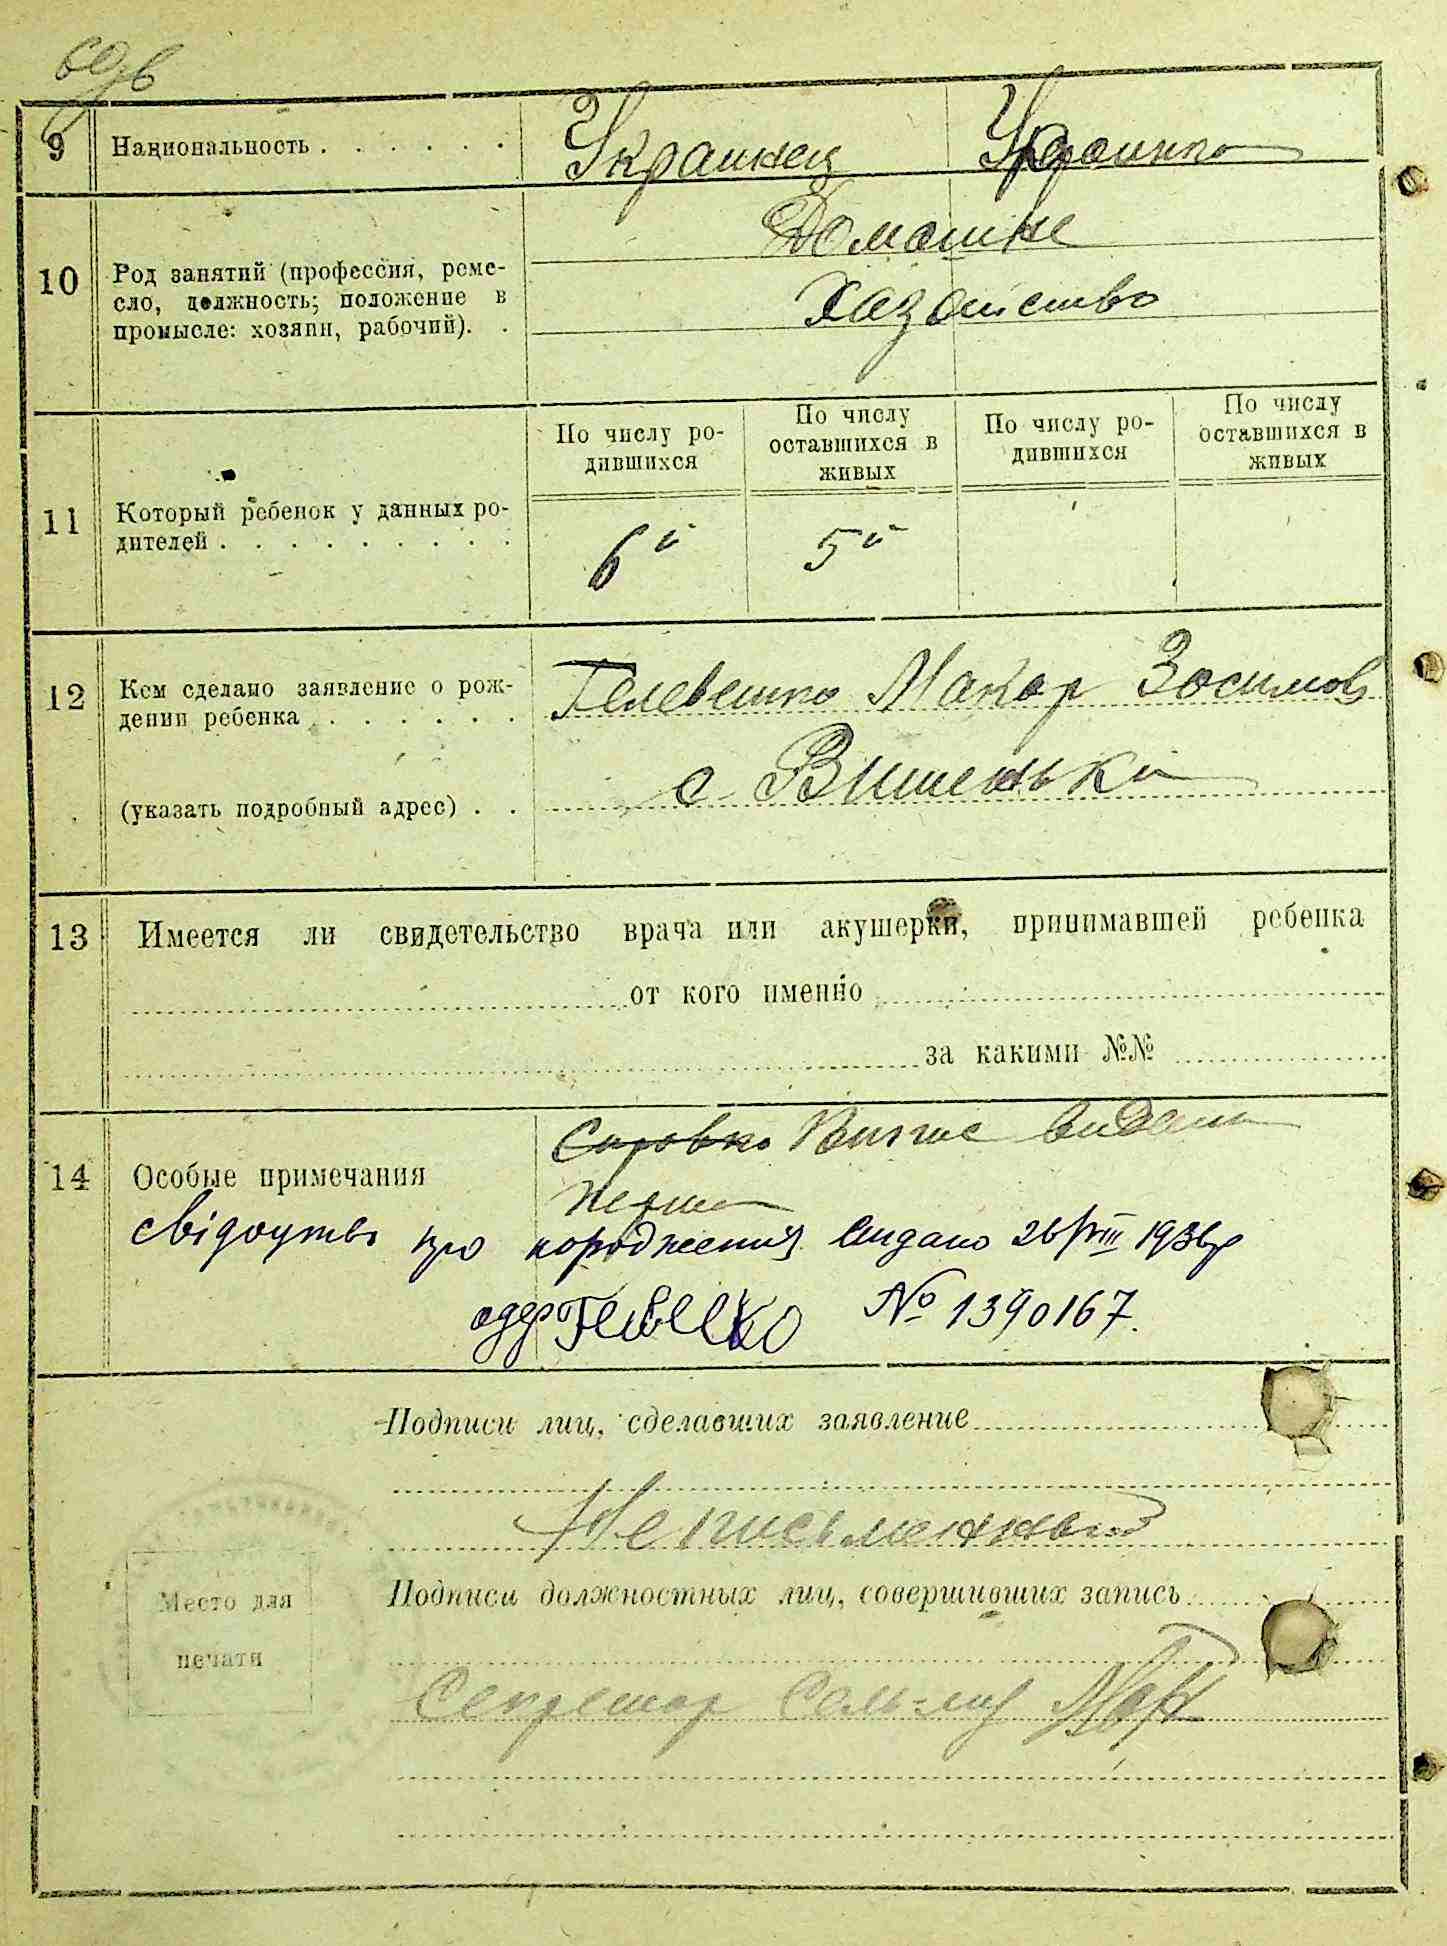 9 Национальность . . . . . . Украинец Украинка
Домашне
10 Род занятий (профессия, реме-
сло, должность; положение в
промысле: хозяин, рабочий). .
Хазяйство
По числу ро-
дившихся
По числу
оставшихся в
живых
По числу ро-
дившихся
По числу
оставшихся в
живых
11 Который ребенок у данных ро-
дителей . . . . . . . . .
6й 5й
12 Кем сделано заявление о рож-
дении ребенка . . . . . .
Макар Зосимов
(указать подробный адрес) . .
с Вишеньки
13 Имеется ли свидетельство врача или акушерки, принимавшей ребенка
от кого именно
за какими №№
Випис видана
14 Особые примечания
перша
свідоцтво про народження видано 26/VIII 1936р
№ 1390167.
Подписи лиц, сделавших заявление
Неписьменный
Подписи должностных лиц, совершивших запись
Место для
печати
Секретар